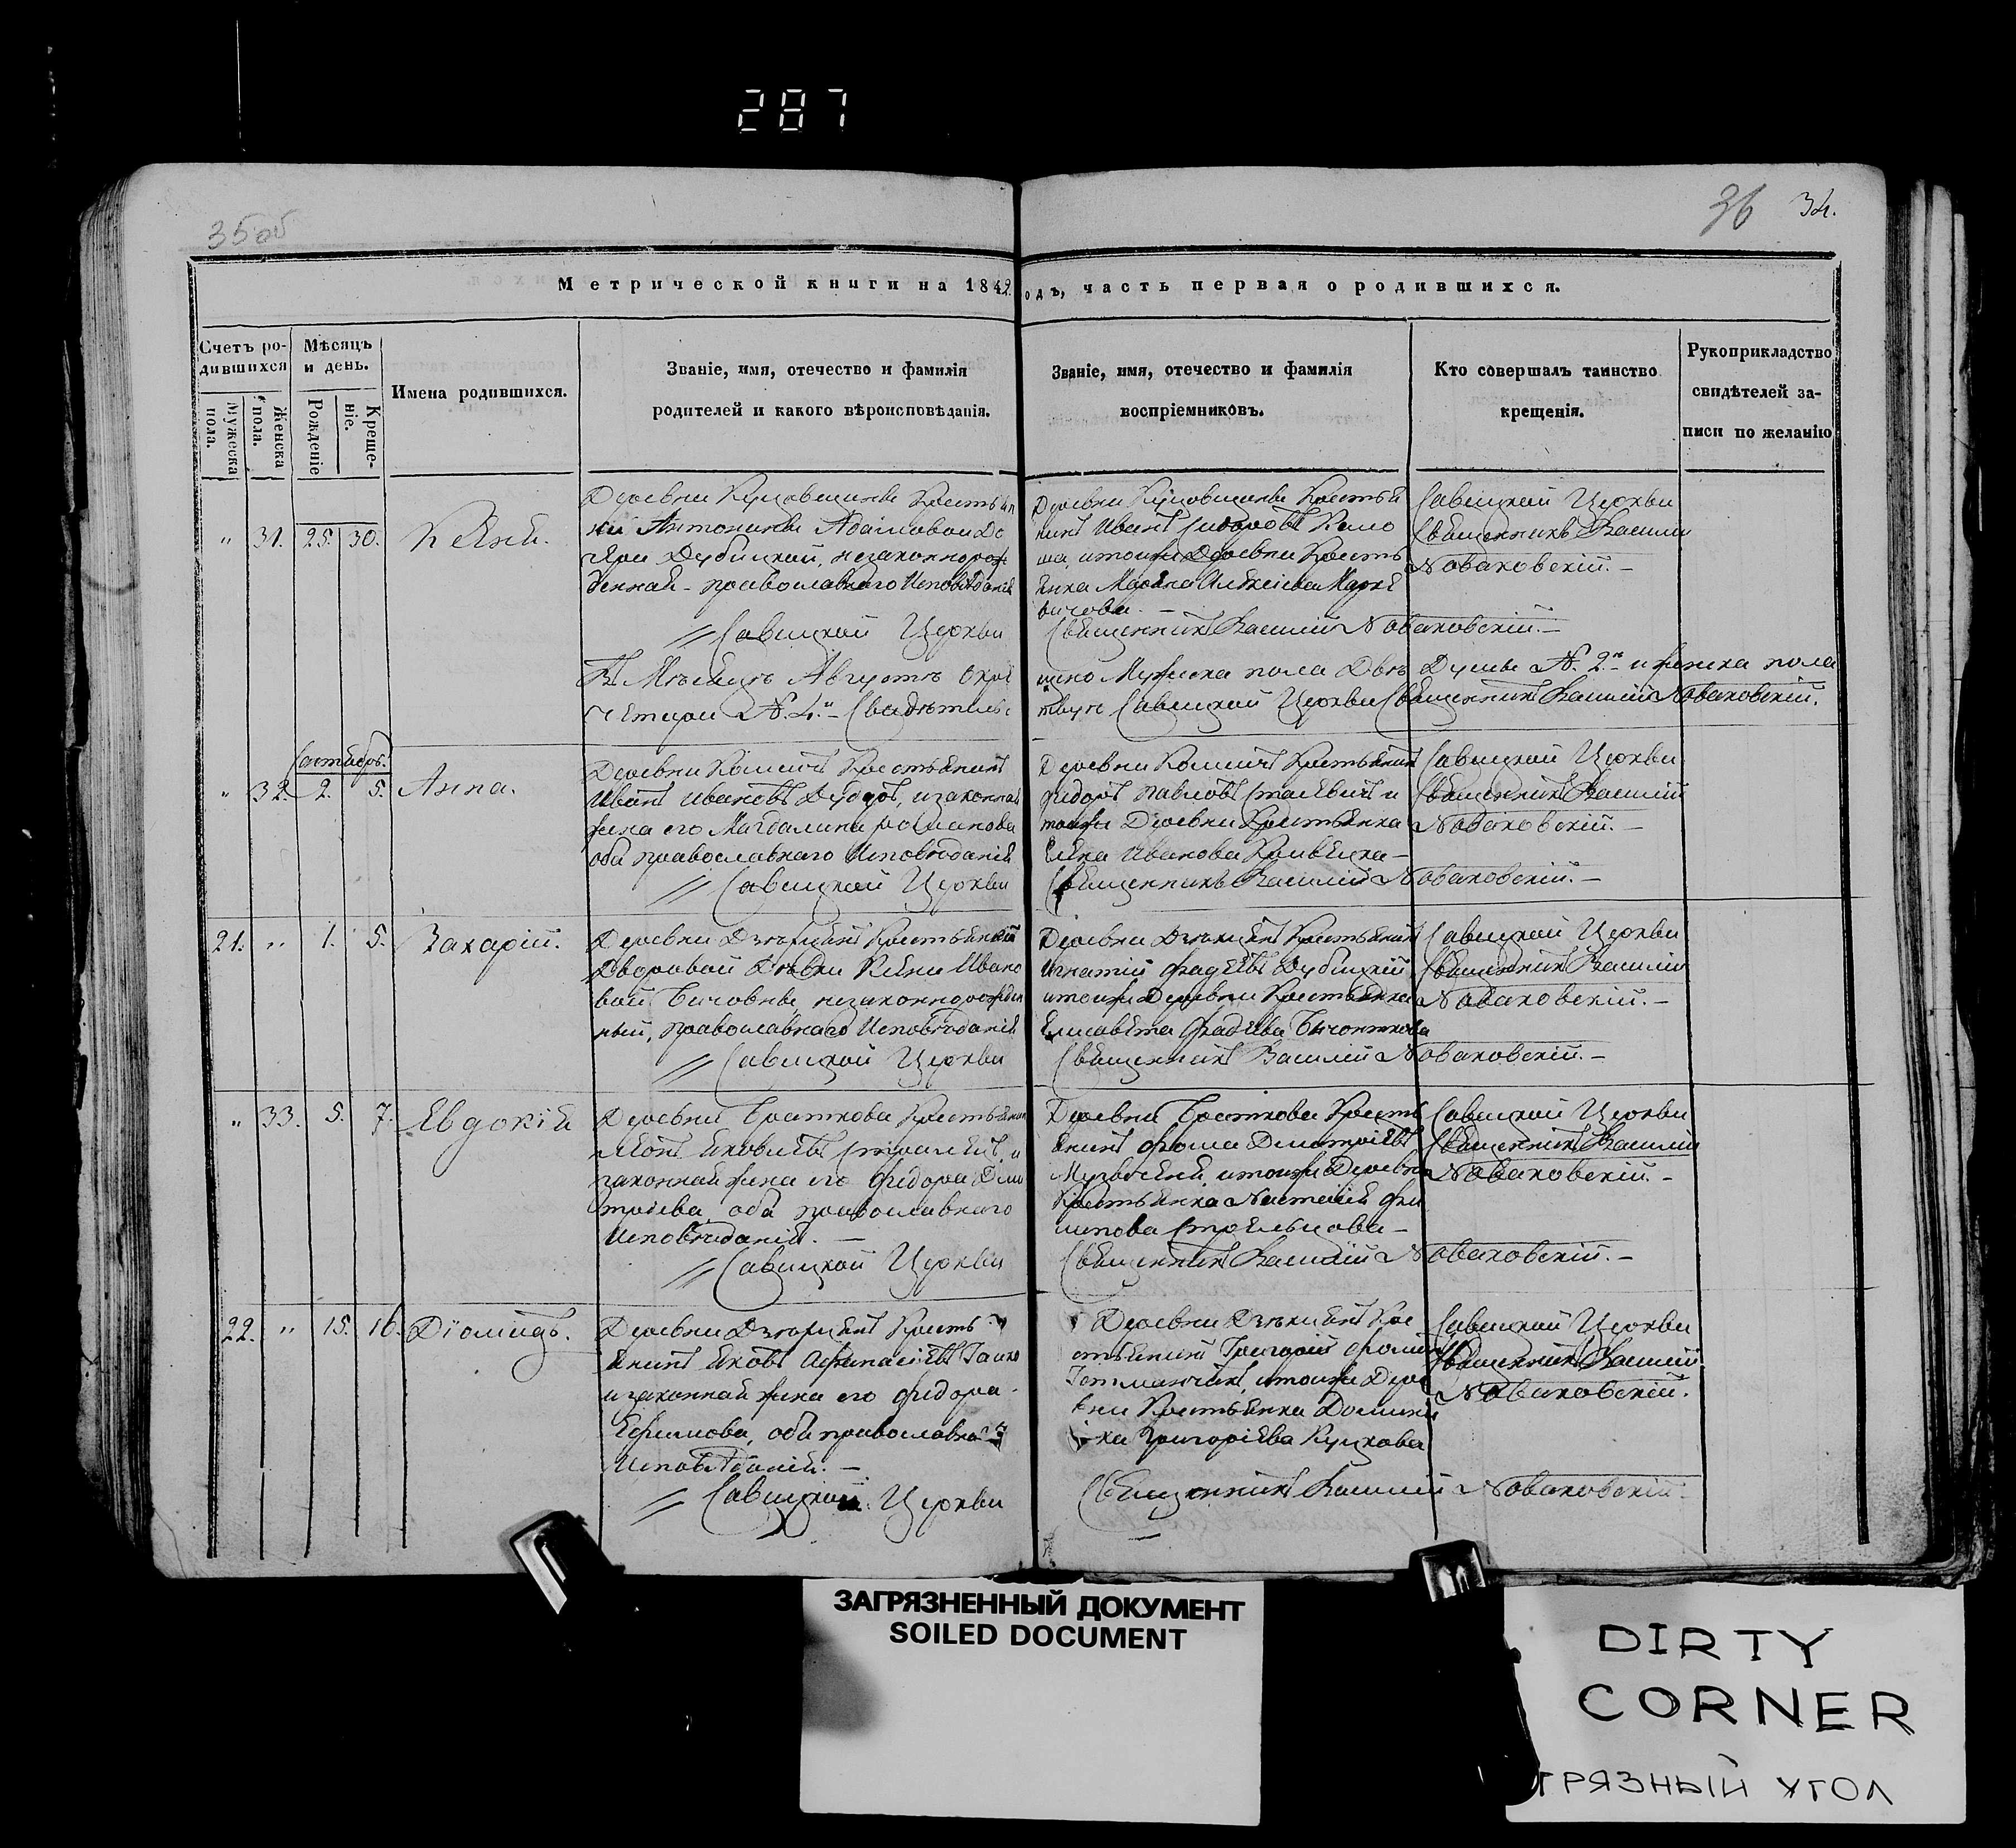 287
35об
36 34.
Метрической книги на 1842 одъ, часть первая о родившихся.
Счетъ родившихся
Мужеска пола.
Женска пола.
Мѣсяцъ и день.
Рожденіе
Крещеніе.
Имена родившихся.
Званіе, имя, отечество и фамилія
родителей и какого вѣроисповѣданія.
Званіе, имя, отечество и фамилія
воспріемниковъ.
Кто совершалъ таинство
крещенія.
Рукоприкладство
свидѣтелей за-
писи по желанію
" 31. 25. 30.
Деревни крестьян
ки Антонины Адамовой До
чери Дубицкой, незаконнорож
денная - православнаго Исповѣданія
// Савицкой Церкви
Деревни Крестья
нинъ Иванъ
ша, и тойже Деревни Кресть
янка Алексіева
Священникъ Василій Новаковскій. —
Савицкой Церкви
Священникъ Василій
Новаковскій. —
В Мѣсяцѣ Августѣ окре
щено Мужеска пола Двѣ Души № 2. и женска пола
Четыри № 4. — Свидѣтельс
твуетъ Савицкой Церкви Священникъ Василій Новаковскій.
Сентябрь.
" 32. 2. 5. Анна.
Деревни Крестьянинъ
Иванъ Ивановъ, и законная
жена его Магдалина Романова
оба православнаго Исповѣданія
// Савицкой Церкви
Деревни Крестьянинъ
Фидоръ Павловъ и
тойже Деревни Крестьянка
Иванова
Священникъ Василій Новаковскій. —
Савицкой Церкви
Священникъ Василій
Новаковскій. —
21. " 1. 5. Захарій.
Деревни Крестьянской
Дворовой Дѣвки Ивано
вой незаконнорожден
ный, православнаго Исповѣданія
// Савицкой Церкви
Деревни Крестьянинъ
Игнатій Фадѣевъ Дубицкій
и тойже Деревни Крестьянка
Елисавета Фадѣева
Священникъ Василій Новаковскій. —
Савицкой Церкви
Священникъ Василій
Новаковскій. —
" 33. 5. 7. Евдокія
Деревни Браткова Крестьянин
Яковлевъ и
законная жена его Фидора Дми
тріева, оба православнаго
Исповѣданія. —
// Савицкой Церкви
Деревни Браткова Кресть
янинъ Фома Дмитріевъ
и тойже Деревни
Крестьянка Настасія Фи
липова Стрельцова —
Священникъ Василій Новаковскій. —
Савицкой Церкви
Священникъ Василій
Новаковскій. —
22. " 15. 16. Діомидъ.
Деревни Кресть
янинъ Яковъ Афанасіевъ
и законная жена его Фидора
Ефимова, оба православна
Исповѣданія. —
// Савицкой Церкви
Деревни Кре
стьянинъ Григорій
и тойже Дере
вни Крестьянка Домини
ка Григоріева Куцкова
Священникъ Василій Новаковскій.
Савицкой Церкви
Священникъ Василій
Новаковскій.
ЗАГРЯЗНЕННЫЙ ДОКУМЕНТ
SOILED DOCUMENT
DIRTY
CORNER
ГРЯЗНЫЙ УГОЛ